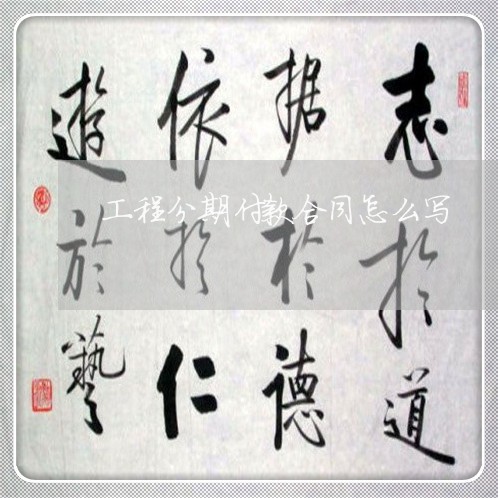 志於道
据於德
依於仁
遊於藝
工程分期付款合同怎么写